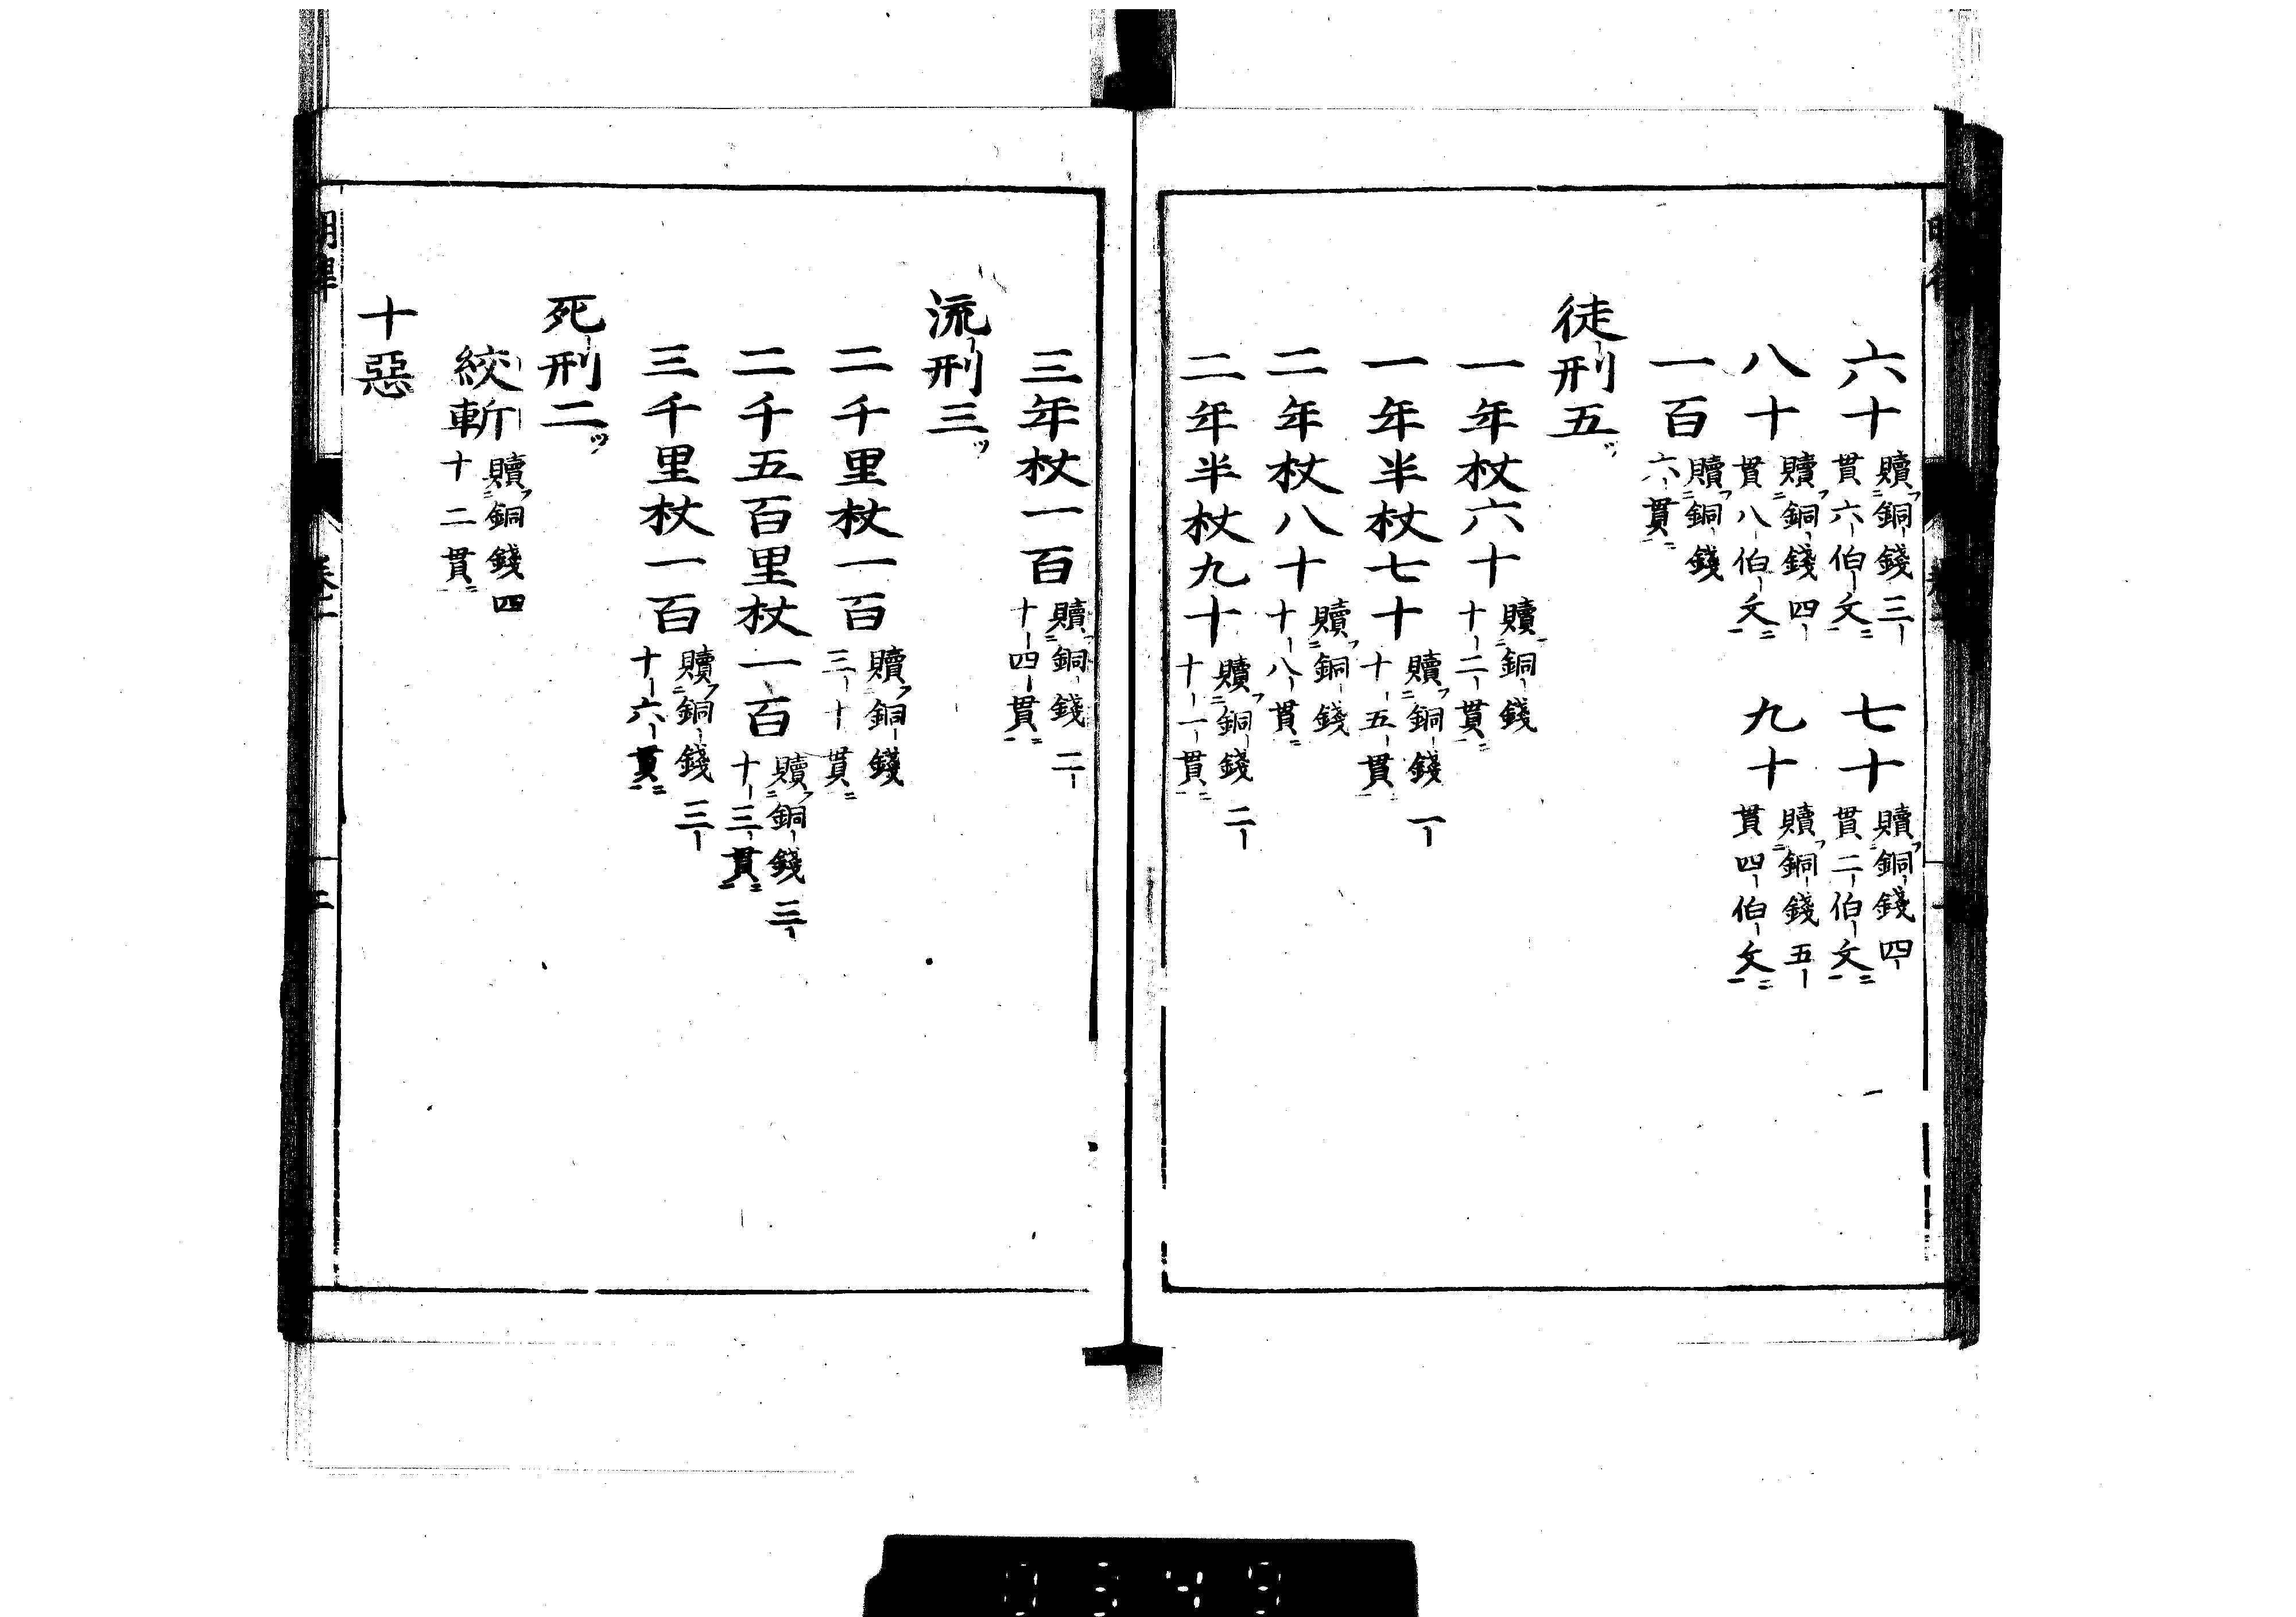 六十贖銅錢三貫六伯文 七十贖銅錢四貫二伯文
八十贖銅錢四貫八伯文 九十贖銅錢五貫四伯文
一百贖銅錢六貫
徒刑五
一年杖六十贖銅錢十二貫
一年半杖七十贖銅錢一十五貫
二年杖八十贖銅錢十八貫
二年半杖九十贖銅錢二十一貫
三年杖一百贖銅錢二十四貫
流刑三
二千里杖一百贖銅錢三十貫
二千五百里杖一百贖銅錢三十三貫
三千里杖一百贖銅錢三十六貫
死刑二
絞斬贖銅錢四十二貫
十惡
0349